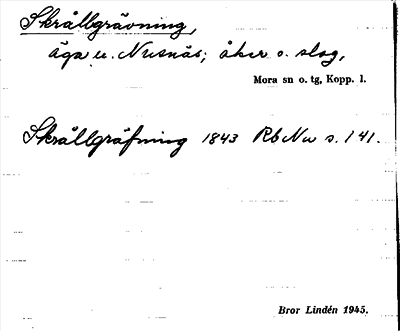 Skrållgrävning,
äga u. Nusnäs; åker o. slog,
Mora sn o. tg, Kopp. l.
Skrållgräfning 1843 Rb Nu s. 141.
Bror Lindén 1945.